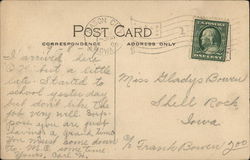 POST CARD
CORRESPONDENCE
ADDRESS ONLY
I arrived here
O.K. but a little
late. Started to
school yesterday
but don't like the
job very well. Sup-
pose you are just
having a grand time
you must come down
to M. C. some time.
Yours, Carl
Miss Gladys Bowen
Shell Rock
Iowa
c/o Frank Bowen